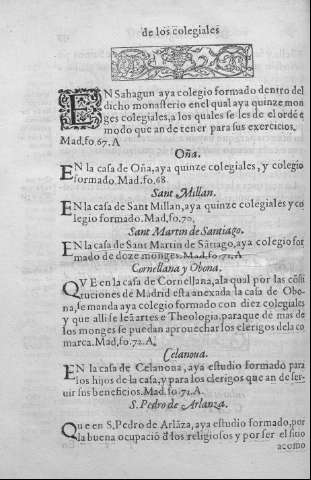 de los colegiales
EN Sahagun aya colegio formado dentro del
dicho monasterio en el qual aya quinze mon
ges colegiales, a los quales se les de el ordẽ e
modo que an de tener para sus exercicios.
Mad. fo. 67. A
Oña.
EN la casa de Oña, aya quinze colegiales, y colegio
formado. Mad. fo. 68.
Sant Millan.
EN la casa de Sant Millan, aya quinze colegiales y co
legio formado. Mad. fo. 70.
Sant Martin de Santiago.
EN la casa de Sant Martin de Sãtiago, aya colegio for
mado de doze monges. Mad. fo. 71. A
Cornellana y Obona.
QVE en la casa de Cornellana, a la qual por las cõsti
tuciones de Madrid esta anexada la casa de Obo-
na, se manda aya colegio formado con diez colegiales
y que alli se leã artes e Theologia, para que de mas de
los monges se puedan aprouechar los clerigos de la co
marca. Mad. fo. 72. A.
Celanoua.
EN la casa de Celanoua, aya estudio formado para
los hijos de la casa, y para los clerigos que an de ser-
uir sus beneficios. Mad. fo. 71. A.
S. Pedro de Arlanza.
Que en S. Pedro de Arlãza, aya estudio formado, por
la buena ocupaciõ đ los religiosos y por ser el sitio
acomo